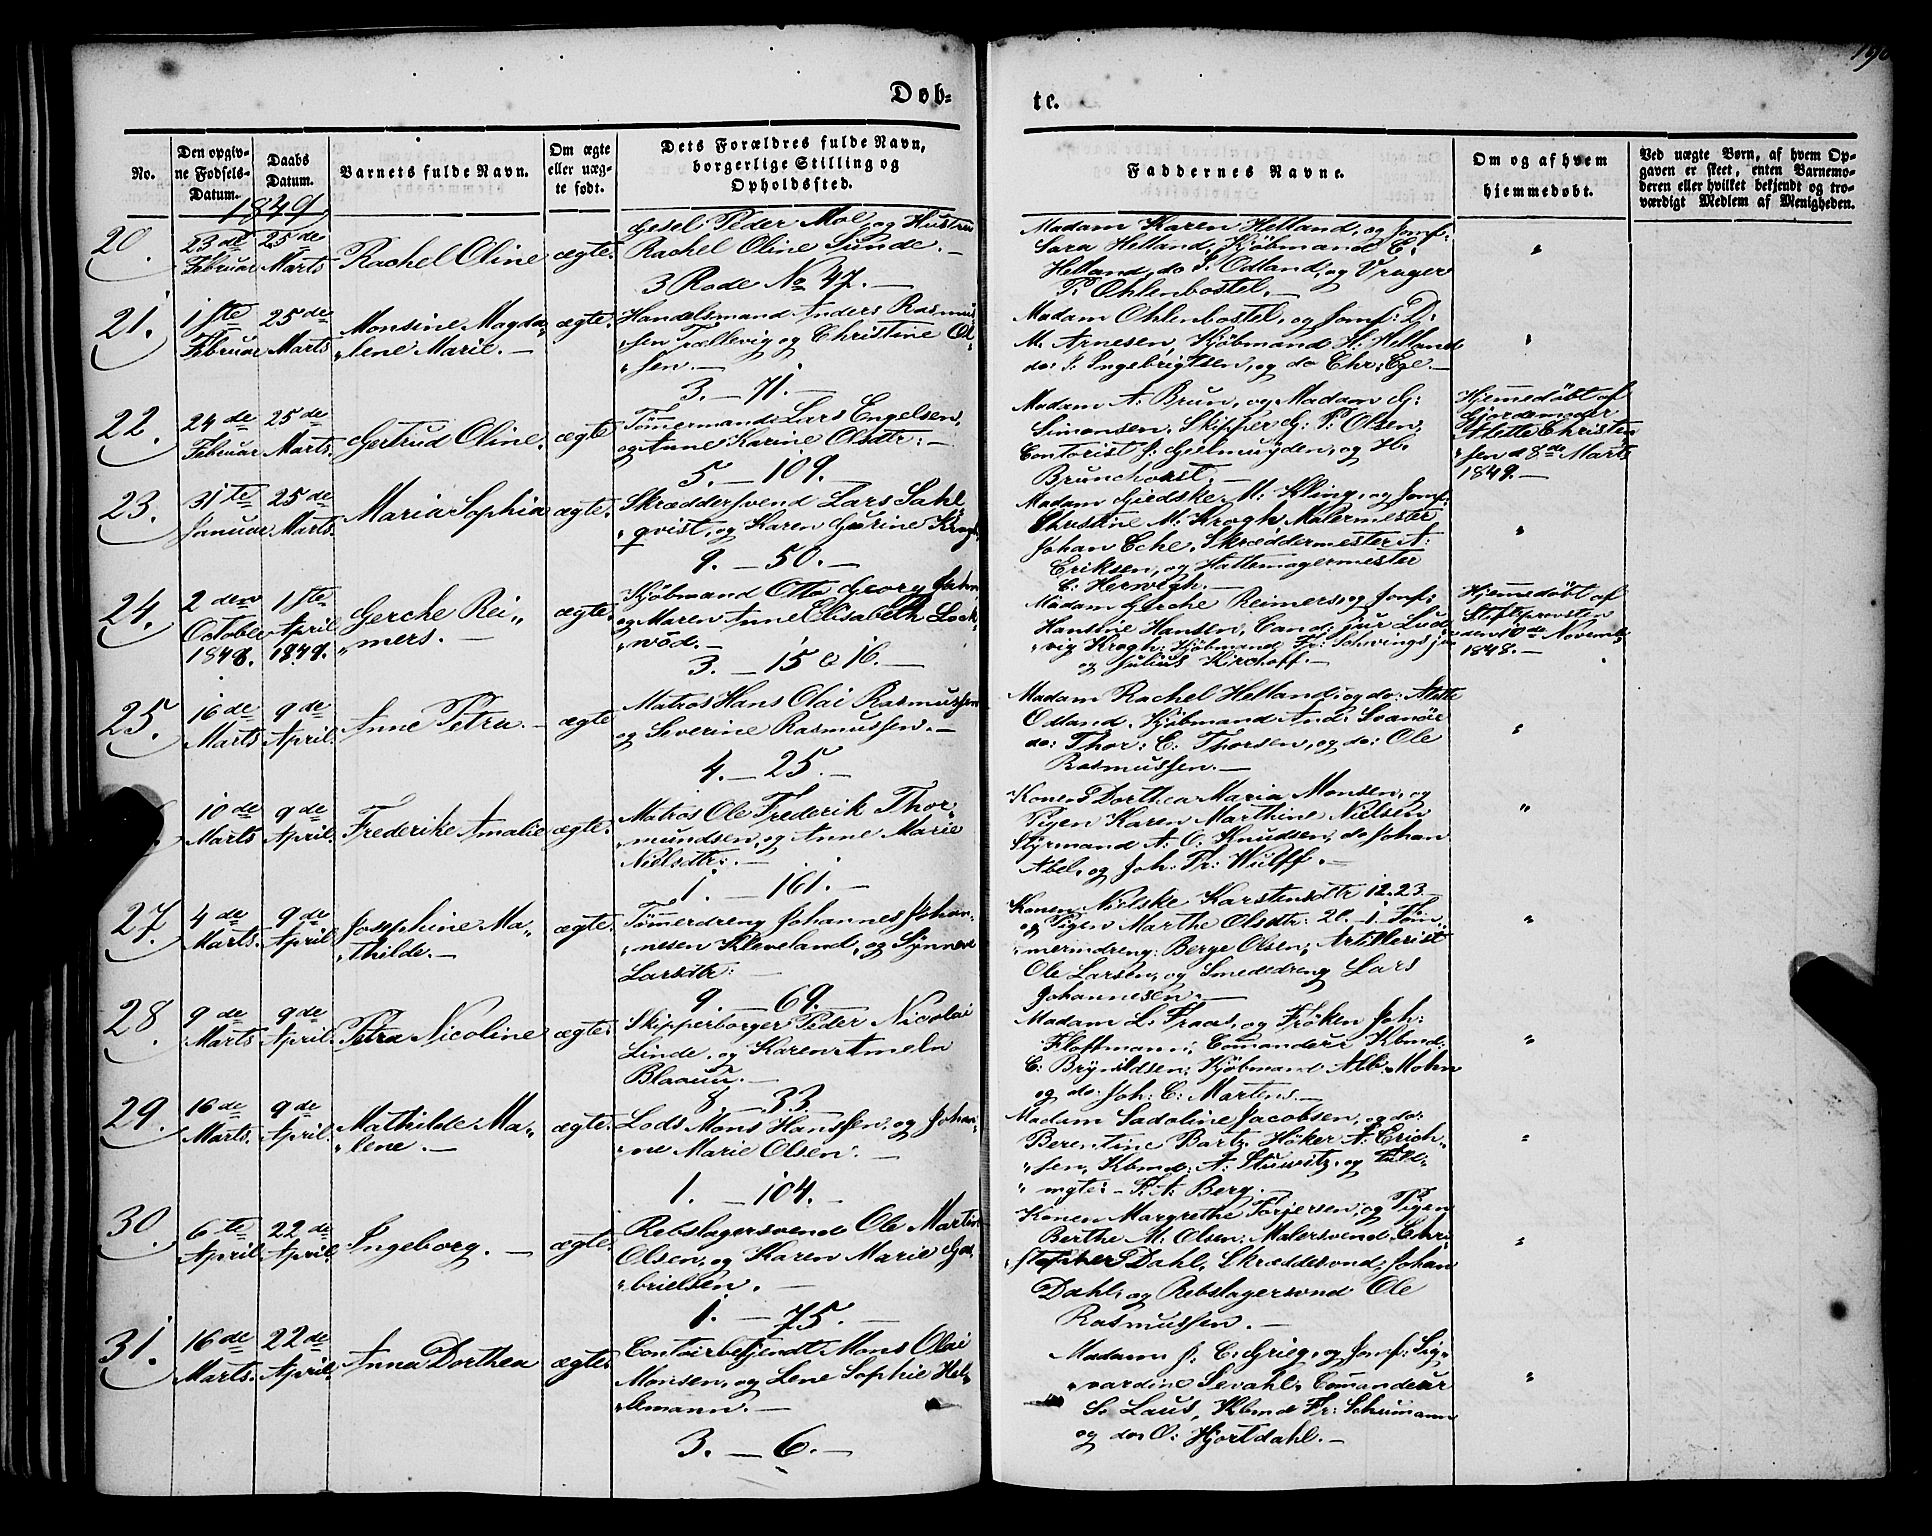 190
Døb-
te.
No.
Den opgiv-
ne Fødsels-
Datum.
Daabs
Datum.
Barnets fulde Navn.
Om ægte
eller uæg-
te født.
Dets Forældres fulde Navn,
borgerlige Stilling og
Opholdssted.
Faddernes Navne.
Om og af hvem
hjemmedøbt.
Ved uægte Børn, af hvem Op-
gaven er skeet, enten Barnemo-
deren eller hvilket bekjendt og tro-
værdigt Medlem af Menigheden.
1849
20.
23de
Februar
25de
Marts
Rachel Oline
ægte.
Gesel Peder Moe, og Hustru
Rachel Oline Sunde.
3 Rode No 47.
Madam Karen Helland, og Jomf:
Sara Helland, Kjøbmand C.
Helland, do J. Odland, og Vrager
P. Ohlenbostel.
"
21.
1ste
Februar
25de
Marts
Monsine Magda-
"lene Marie.
ægte.
Handelsmand Anders Rasmus-
"sen Trættevig og Christine Ol-
"sen.
3. — 71.
Madam Ohlenbostel, og Jomf: D:
M. Arnesen, Kjøbmand H. Helland
do: J. Ingebrigtsen, og do Chr: Ege.
"
22.
24de
Februar
25de
Marts.
Gertrud Oline.
ægte
Tømmermand Lars Engelsen,
og Anne Karine Olsdtr:
5. — 109.
Madam A: Brun, og Madam G:
Simonsen. Skipper G: P. Olsen,
Contorist J: Geelmuyden, og H:
Brunchorst.
Hjemmedøbt af
Gjordemoder
Mette Christen
"sen d 8de Marts
1849.
23.
31te
Januar
25de
Marts
Maria Sophia
ægte.
Skræddersvend Lars Sahl
"qvist, og Karen Gurine Krogh
9. — 50.
Madam Giedske M. Kling, og Jomf:
Christine M. Krogh, Malermester
Johan Eche, Skræddermester A:
Eriksen, og Hattemagermester
C: Herwegh.
"
24.
2den
October
1848.
1ste
April
1849.
Gerche Rei"
"mers.
ægte.
Kjøbmand Otto Georg Jahn
og Maren Anne Elisabeth Lock
"wod.
3. — 15 & 16.
Madam Gerche Reimers, og Jomf:
Hansine Hansen, Cand: jur Lud
"vig Krogh, Kjøbmand Fr: Schwingsjun
og Julius Kirchoff.
Hjemmedøbt af
Stiftsprovsten
den 10de Novemb:
1848.
25.
16de
Marts
9de
April.
Anne Petra.
ægte
Matros Hans Olai Rasmussen
og Severine Rasmussen.
4. — 25.
Madam Rachel Helland, og do: Mette
Odland, Kjøbmand And: Svanøe
do: Thor: C: Thorsen, og do: Ole
Rasmussen.
"
10de
Marts
9de
April.
Frederike Amalie
ægte.
Matros Ole Frederik Thor
"mundsen, og Anne Marie
Nielsdtr:
1. — 161.
Konen Dorthea Maria Monsen, og
Pigen Karen Marthine Nielsen
Styrmand A: O: Knudsen, do Johan
Abel, og Joh: Fr: Wulff.
"
27.
4de
Marts.
9de
April
Josephine Ma"
"thilde.
ægte.
Tømmerdreng Johannes Johan"
"nesen Kleveland, og Synneve
Larsdtr:
9. — 69.
Konen Nielske Karstensdtr 12.23
og Pigen Marthe Olsdtr: 20.—1. Tøm"
"merindreng: Berge Olsen, Artillerist
Ole Larsen, og Smededreng Lars
Johannesen.
"
28.
9de
Marts
9de
April.
Petra Nicoline
ægte.
Skipperborger Peder Nicolai
Linde, og Karen Ameln
Blaauw.
8 — 33.
Madam L. Fraas, og Frøken Joh:
Flottmann, Comandeur Kbmd:
C: Brynildsen, Kjøbmand Alb: Mohn
og do: Joh: C: Martens.
"
29.
16de
Marts.
9de
April.
Mathilde Ma"
"lene.
ægte.
Lods Mons Hanssen, og Johan"
"ne Marie Olsen.
1. — 104.
Madam Sadoline Jacobsen, og do:
Berentine Bartz, Høker A: Erich"
"sen, Kbmd: A: Stuwitz, og Fuld"
"mgte: F: A: Berg.
"
30.
6te
April.
22de
April.
Ingeborg.
ægte.
Rebslagersvend Ole Martin
Olsen, og Karen Marie Ga"
"brielsen.
1. — 75.
Konen Margrethe Torjersen, og Pigen
Berthe M. Olsen, Malersvend Chri"
"stopher Dahl, Skræddersvnd: Johan
Dahl, og Rebslagersvnd Ole
Rasmussen.
"
31.
16de
Marts.
22de
April.
Anna Dorthea
ægte.
Contoirbetjendt Mons Olai
Monsen, og Lene Sophie Hel"
"lemann.
3. — 6.
Madam J. C. Grieg, og Jomf: Sig"
"vardine Sevahl, Comandeur
S. Laus, Kbmd Fr: Schumann
og do: O: Hjortdahl.
"